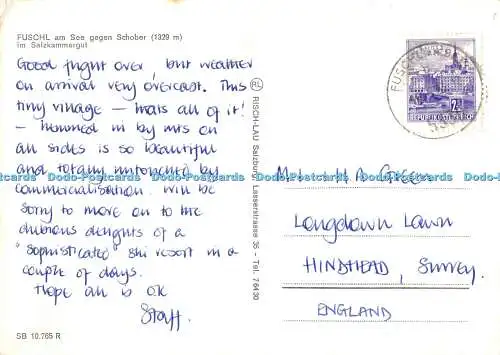 FUSCHL am See gegen Schober (1329 m)
im Salzkammergut
Good flight over, but weather
on arrival very overcast. This
tiny village – thats all of it!
– hemmed in by mts on
all sides is so beautiful
and totally untouched by
commercialisation. Will be
sorry to move on to the
dubious delights of a
"sophisticated" ski resort in a
couple of days.
Hope all is O.K
Staff.
SB 10.765 R
RL RUSCH-LAU Salzburg, Lasserstrasse 35 - Tel. 7 64 30
FUSCHL
2S
REPUBLIK ÖSTERREICH
Green
Longdown Lawn
HINDHEAD, Surrey.
ENGLAND
Dodo-Postcards Dodo-Postcards Dodo-Postcards Dodo-Postcards